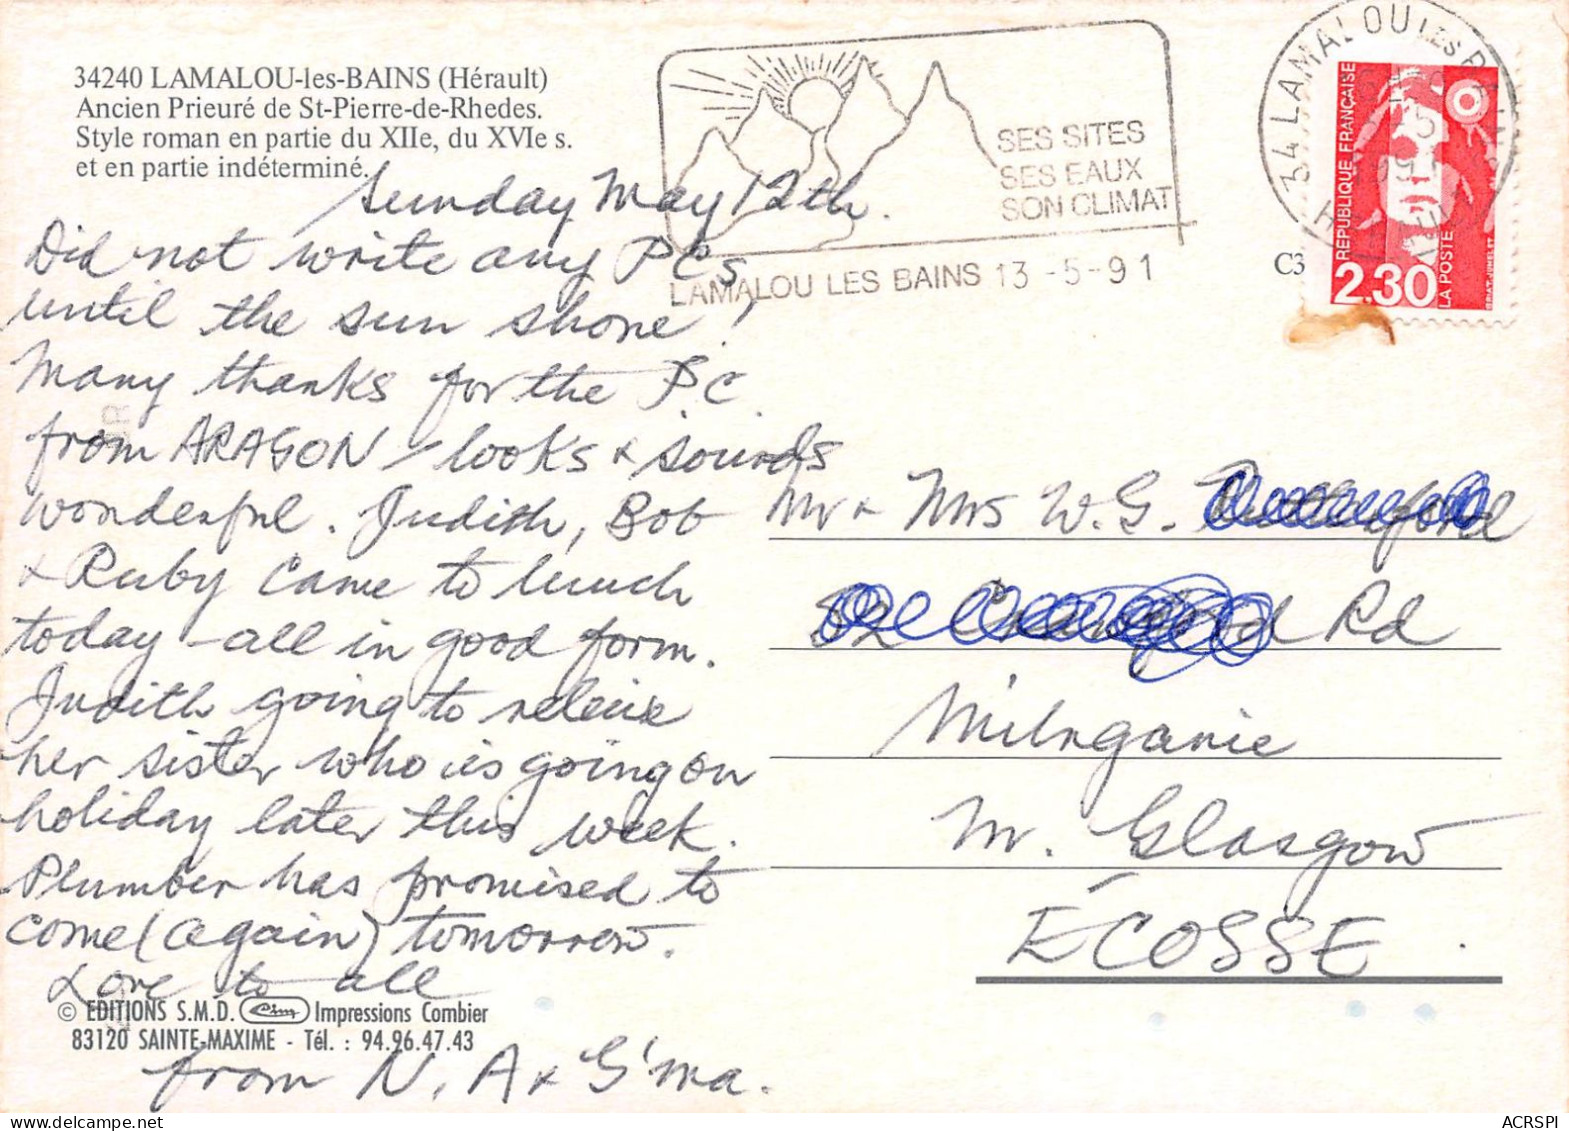 34240 LAMALOU-les-BAINS (Hérault)
Ancien Prieuré de St-Pierre-de-Rhedes.
Style roman en partie du XIIe, du XVIe s.
et en partie indéterminé.
Sunday May 12th.
Did not write any P.Cs
until the sun shone!
Many thanks for the P.C.
from ARAGON - looks & sounds
wonderful. Judith, Bob
& Ruby came to lunch
today - all in good form.
Judith going to release
her sister who is going on
holiday later this week.
Plumber has promised to
come (again) tomorrow.
Love to all
© EDITIONS S.M.D. Cim Impressions Combier
83120 SAINTE-MAXIME - Tél. : 94.96.47.43
from N, A & G'ma.
SES SITES
SES EAUX
SON CLIMAT
LAMALOU LES BAINS 13 -5-91
34 LAMALOU LES BAINS
C3
REPUBLIQUE FRANÇAISE
2.30
LA POSTE
BRIAT-JUMELET
Mr & Mrs W.G.
Rd
Milngavie
Glasgow
ÉCOSSE.
ACRSPI